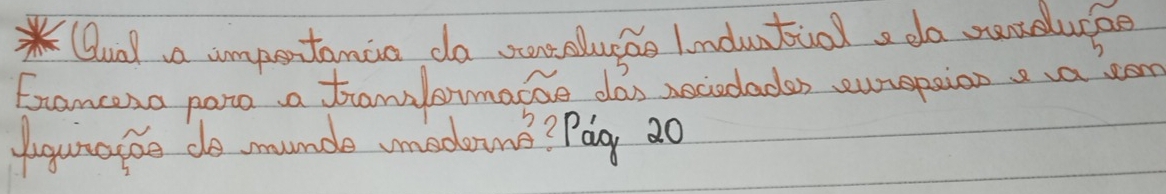 * Qual a importancia da revolução Industrial e da revolução
Francesa para a transformação das sociedades europeias e a com
figuração do mundo moderno? Pág 20